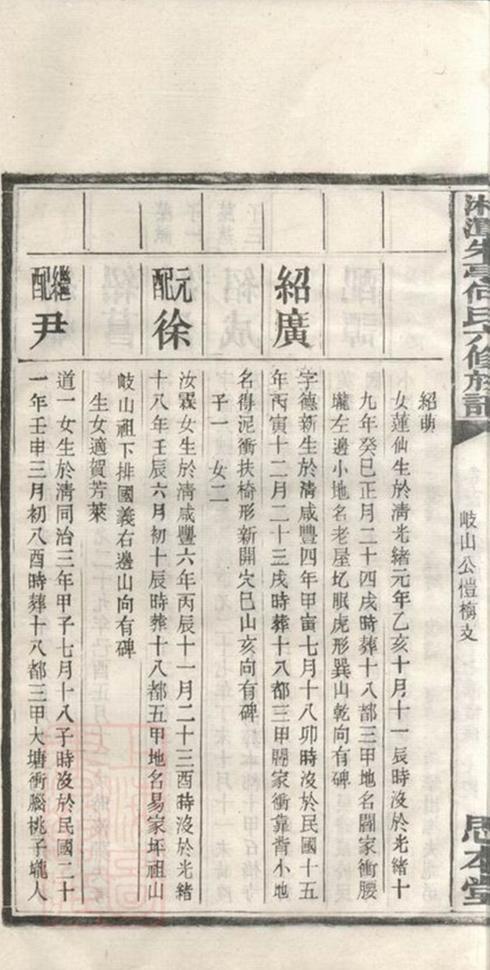 岐山公愷梅支
紹萌
女蓮仙生於清光緒元年乙亥十月十一辰時沒於光緒十
九年癸巳正月二十四戌時葬十八都三甲地名關家衝腰
壠左邊小地名老屋圪眠虎形巽山乾向有碑
紹廣
字德新生於清咸豐四年甲寅七月十八卯時沒於民國十五
年丙寅十二月二十三戌時葬十八都三甲關家衝靠背小地
名得泥衝扶椅形新開穴巳山亥向有碑
子一 女二
元配徐
汝霖女生於清咸豐六年丙辰十一月二十三酉時沒於光緒
十八年壬辰六月初十辰時葬十八都五甲地名易家坪祖山
岐山祖下排國義右邊山向有碑
生女適賀芳萊
繼配尹
道一女生於清同治三年甲子七月十八子時沒於民國二十
一年壬申三月初八酉時葬十八都三甲大塘衝腦桃子壠人